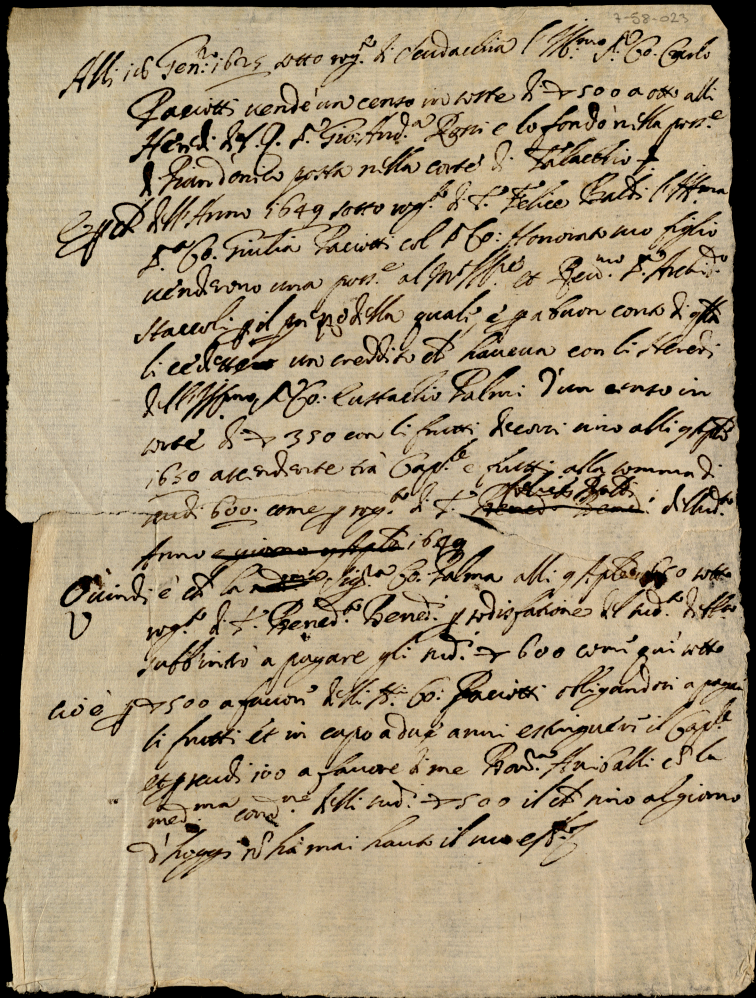 7-58-023
Alli 16 Gen.o 1625 sotto rog.o di Ceudacchia l'Ill.mo S.r Co. Carlo
Paciotti vendè un censo in sorte di ▽ 500 a otto alli
Heredi del q. S.r Gio: And.a Rossi e lo fondò nella poss.e
posta nella corte di Talacchio
Et dell'Anno 1649 sotto rog.o di S.r Felice Baldi l'Ill.ma
S.ra Co. Giulia Paciotti col S.r Co: Honorato suo figlio
venderono una poss.e al M.to Ill.re et Reu.mo S.r Archid.o
Staccoli p il prezzo della quale e p a buon conto di
li cedette un credito ch haueua con li Heredi
dell'Ill.mo S.r Co. Eustachio Palmi d'un censo in
sorte di ▽ 350 con li frutti decorsi sino alli 9
1650 ascendente trà Cap.le e frutti alla somma di
scudi 600. come p rog.o di S.r Felice Baldi dell sud.o
Anno e giorno 1649
Quindi è ch la Sig.ra Co. Palma alli 9 1650 sotto
rog.o di S.r Bened.o Bened. p sodisfatione del sud.o
subbintrò a pagare gli sud.i ▽ 600 come qui sotto
cioè p ▽ 500 a fauore delli SS.i Co: Paciotti obligandosi a pagare
li frutti et in capo a due anni estinguere il Cap.le
et p scudi 100 a fauore di me Anibalti ch la
med.ma cond.ne delli sud.i ▽ 500 il ch sino al giorno
d'hoggi nō hà mai hauto il suo eff.o